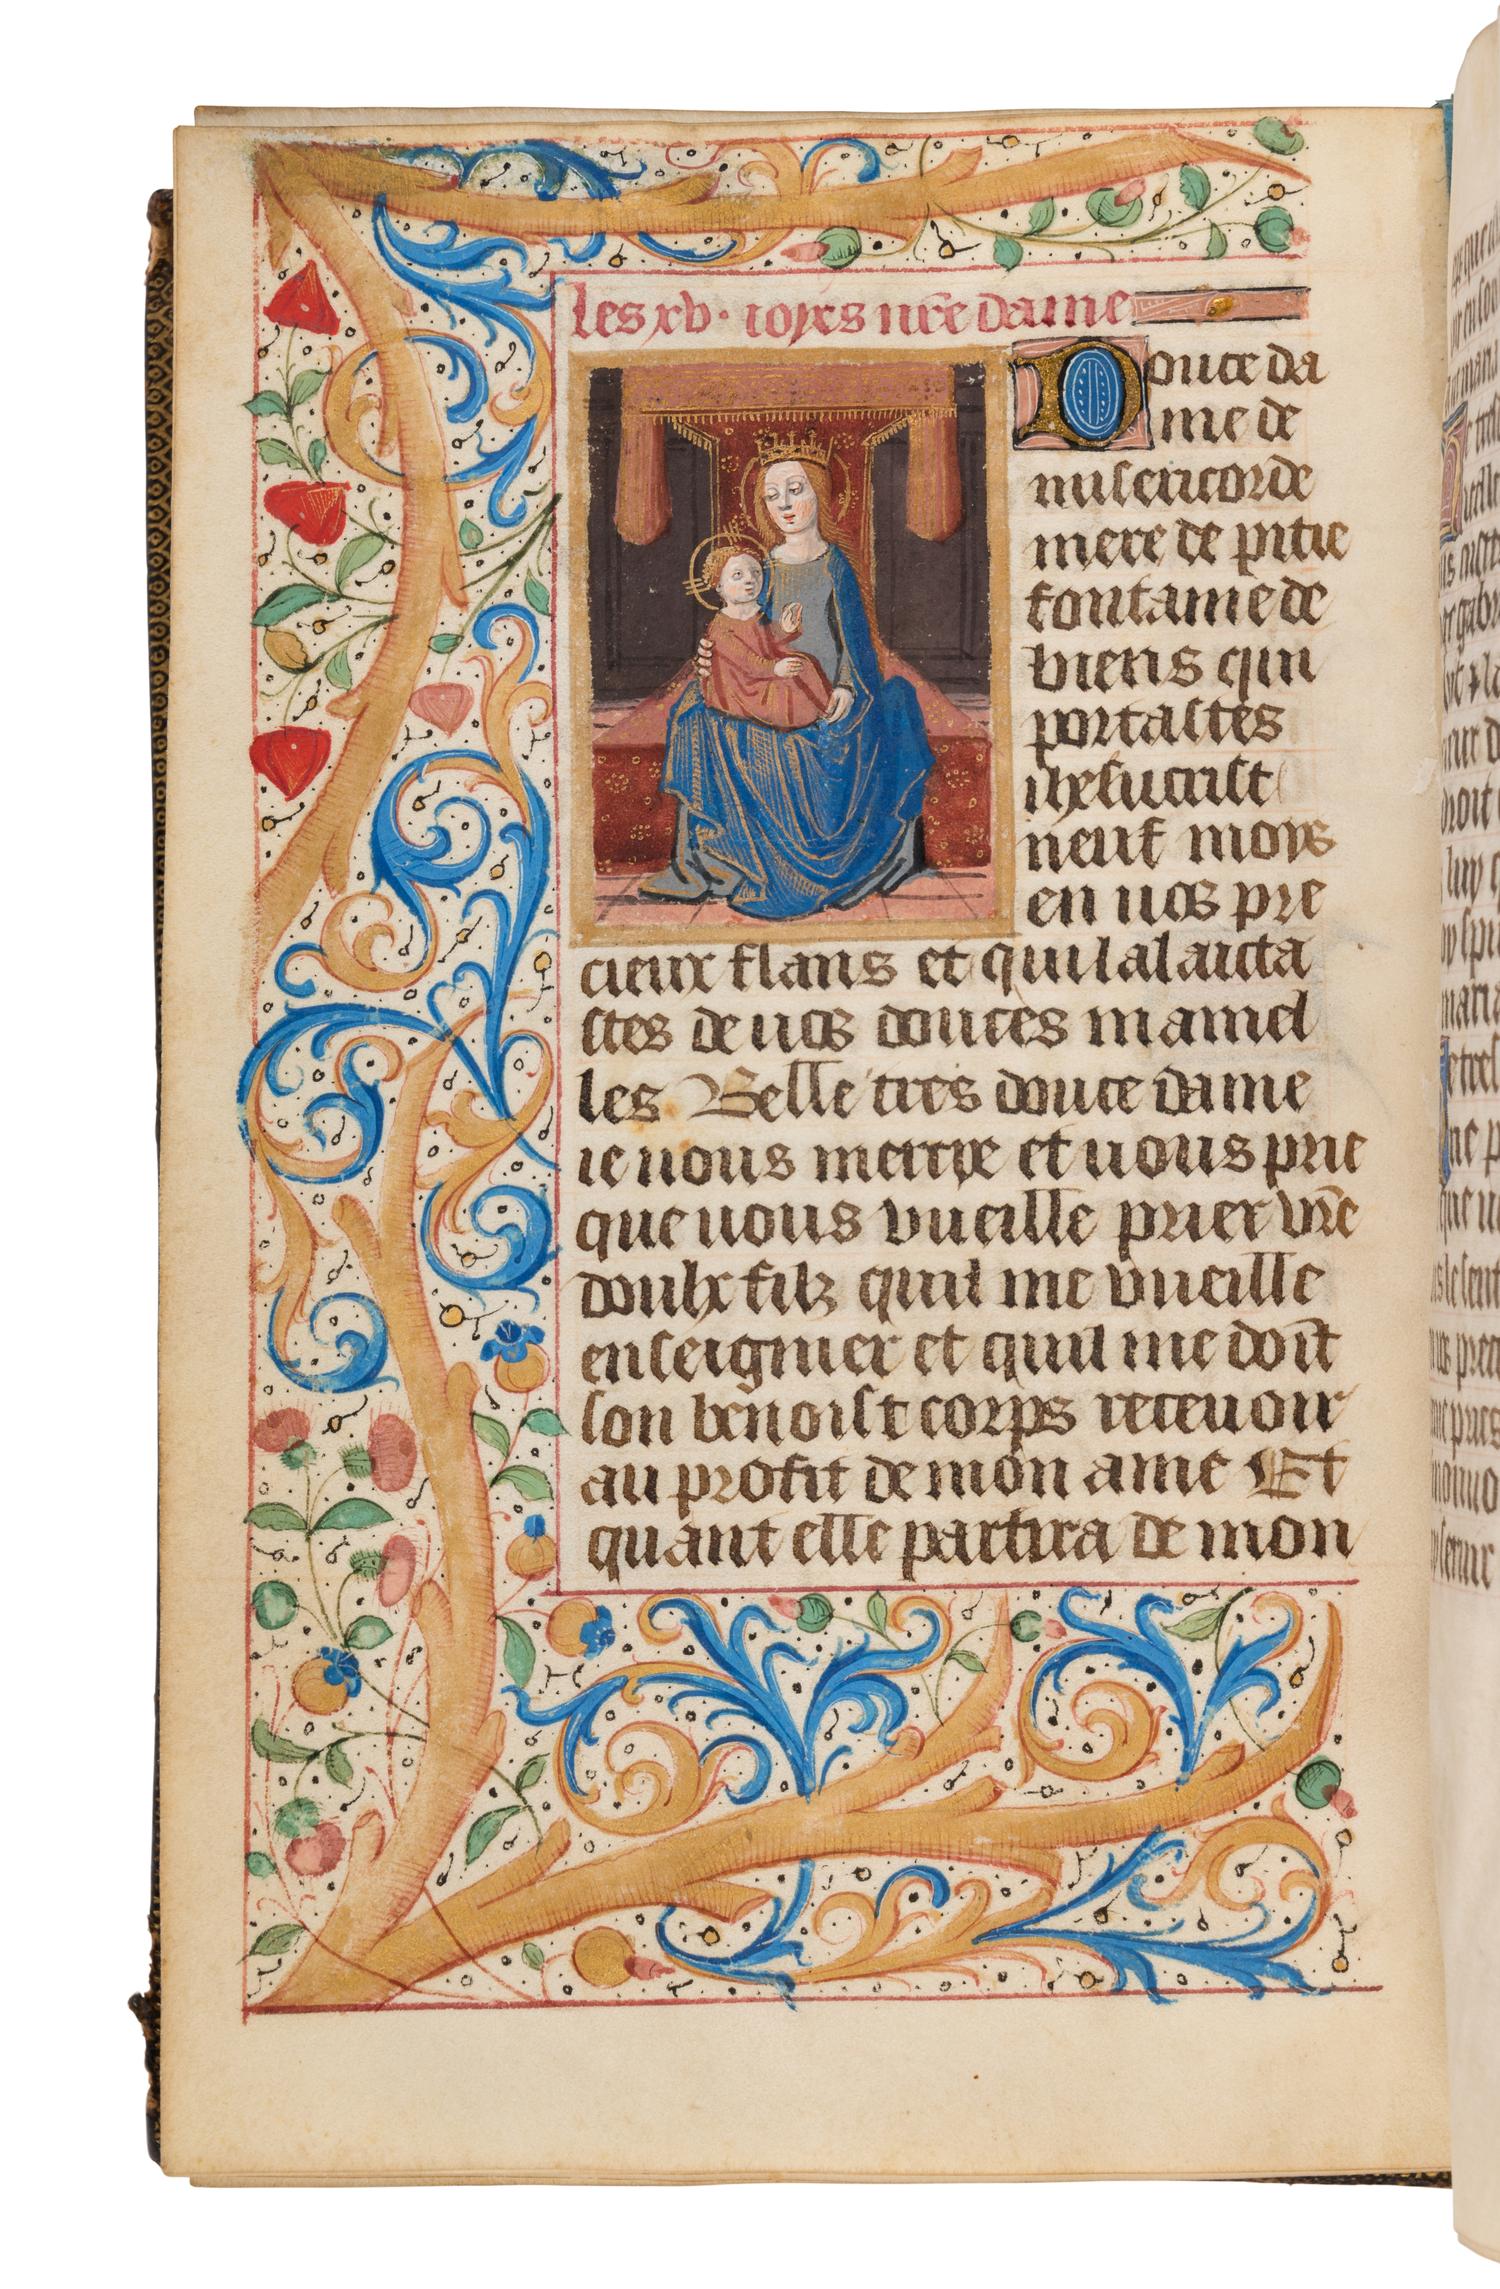 les xv. ioyes nr̃e dame
Douce da
me de
misericorde
mere de pitie
fontaine de
biens qui
portastes
ihesucrist
neuf moys
en uos pre
cieux flans et qui lalaicta
stes de uos douces mamel
les Belle tres douce dame
ie uous mercye et uous prie
que uous vueille prier vr̃e
doulx filz quil me vueille
enseignier et quil me doit̃
son benoist corps receuoir
au profit de mon ame Et
quant elle partira de mon